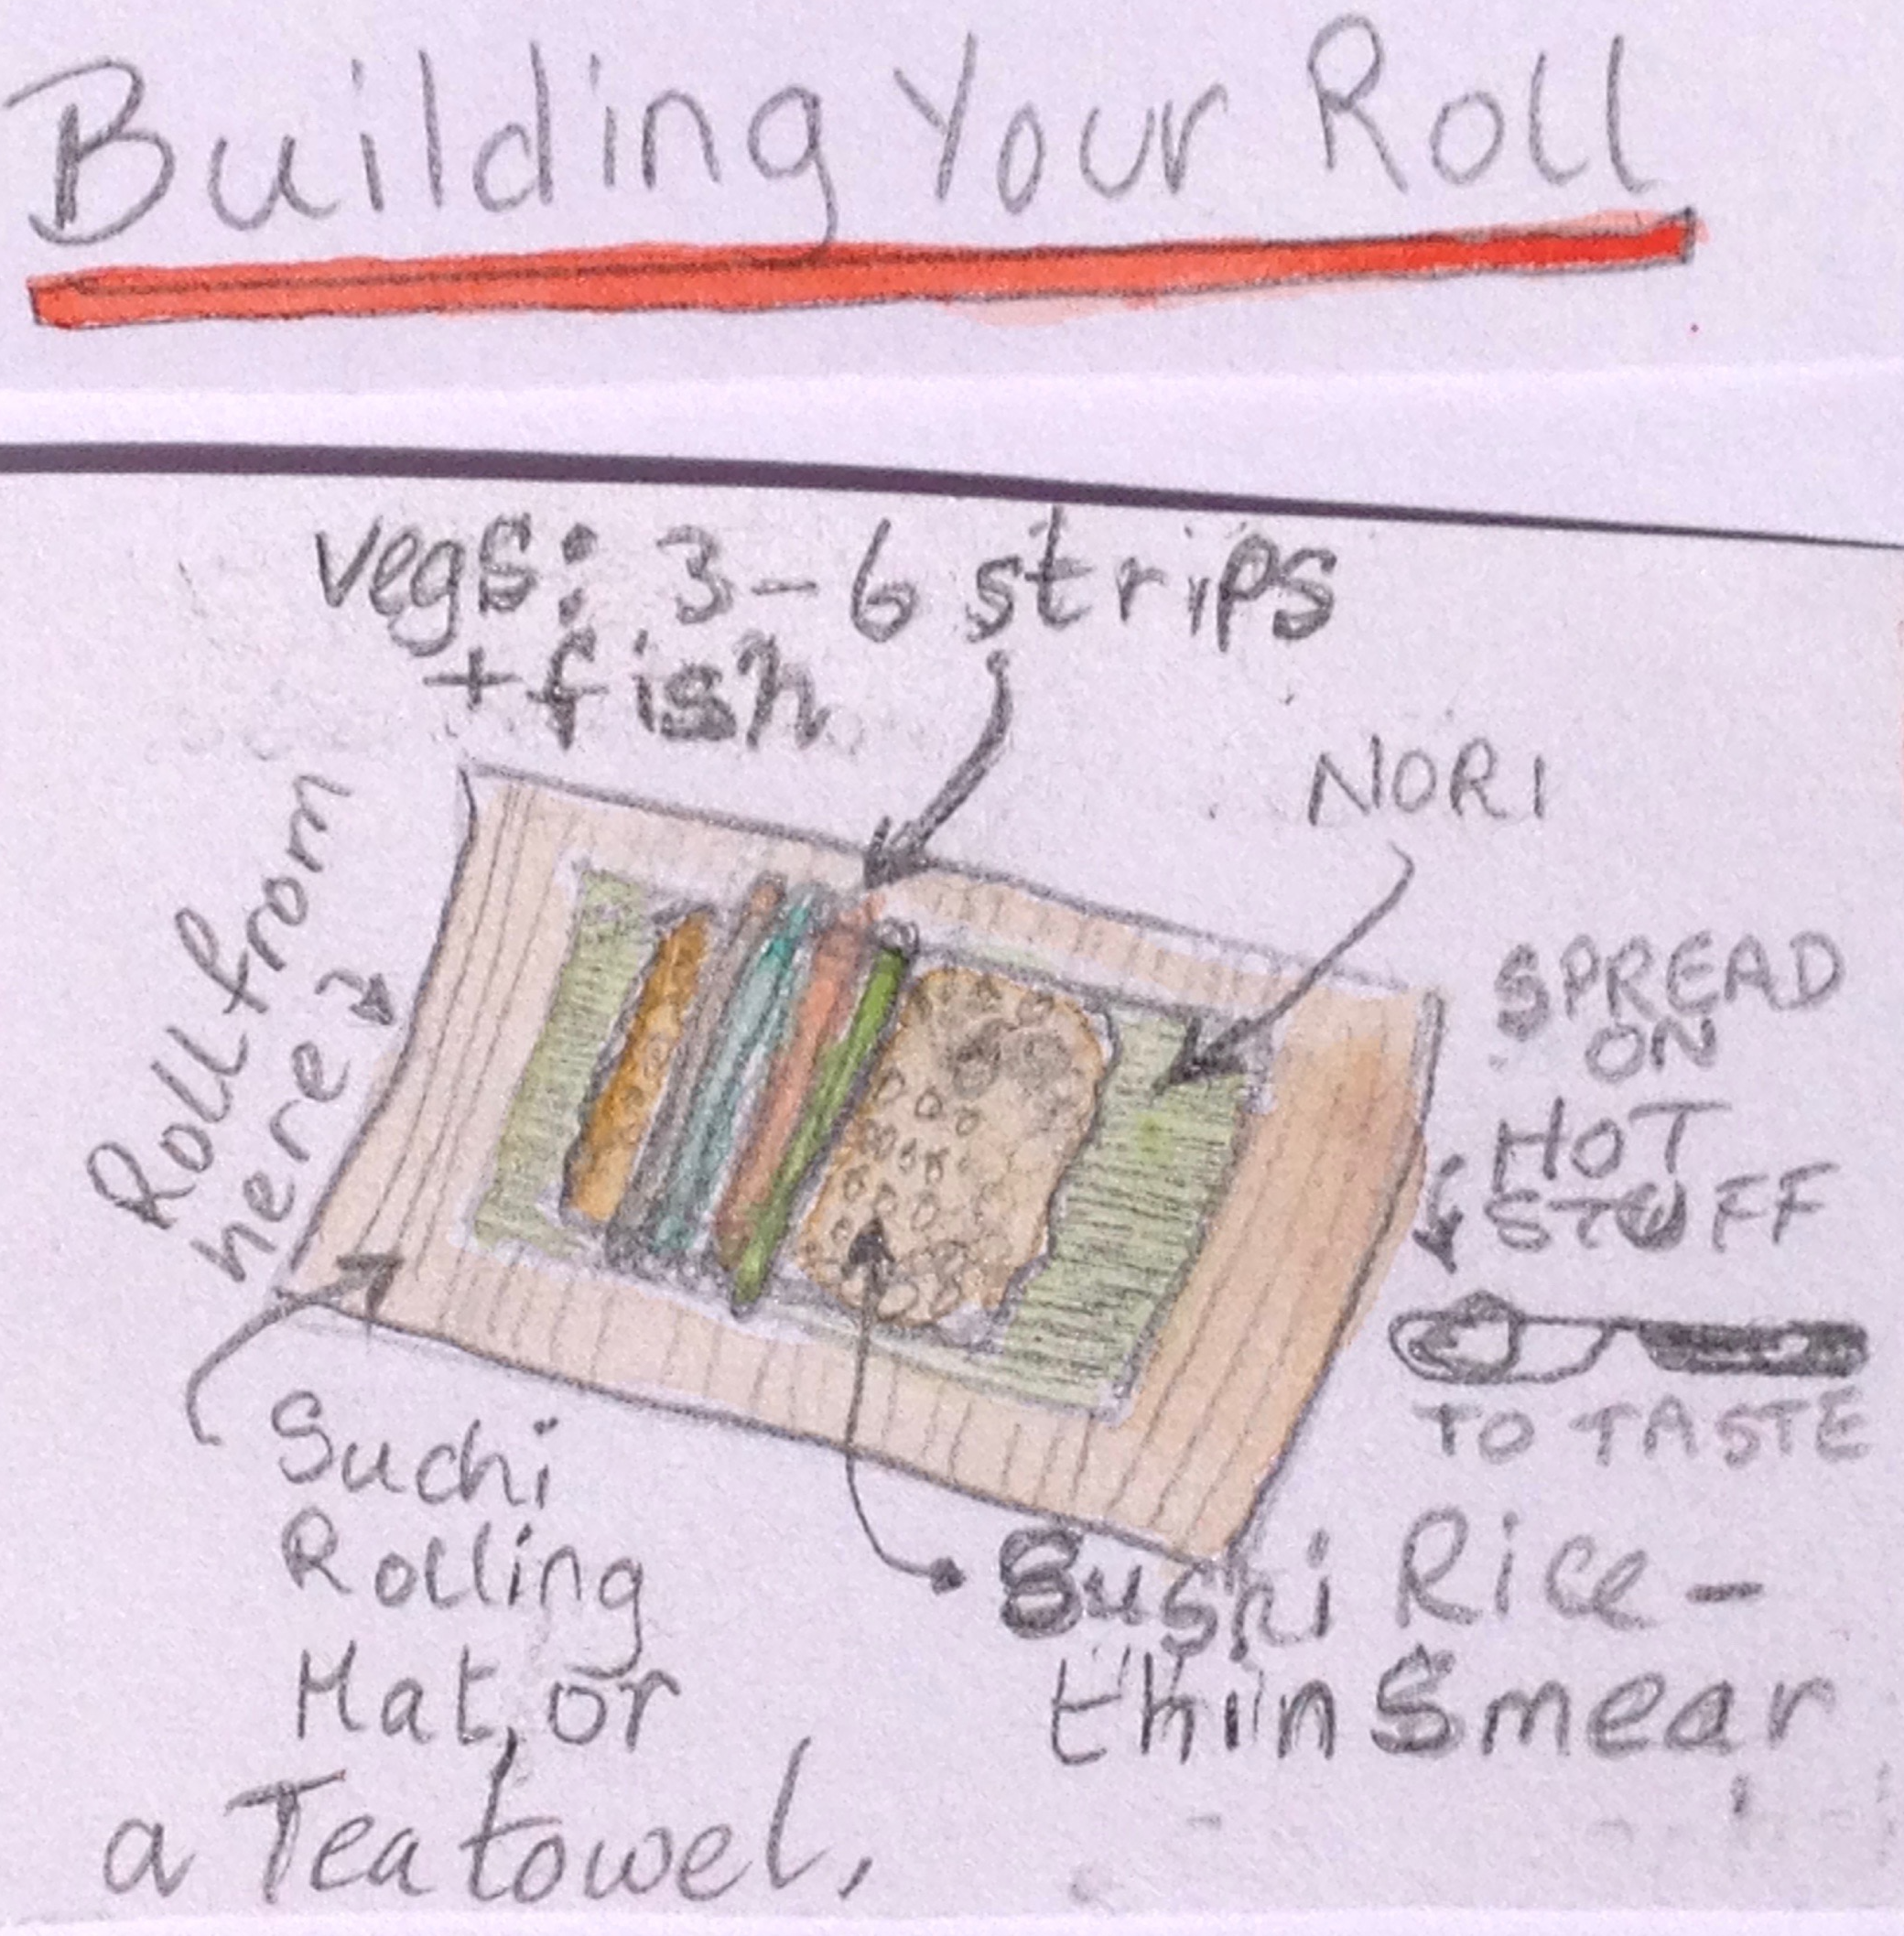 Building Your Roll
vegs: 3-6 strips
+ fish
NORI
Roll from
here
SPREAD
ON
HOT
STUFF
TO TASTE
Suchi
Rolling
Mat, or
a Tea towel,
Sushi Rice -
thin Smear